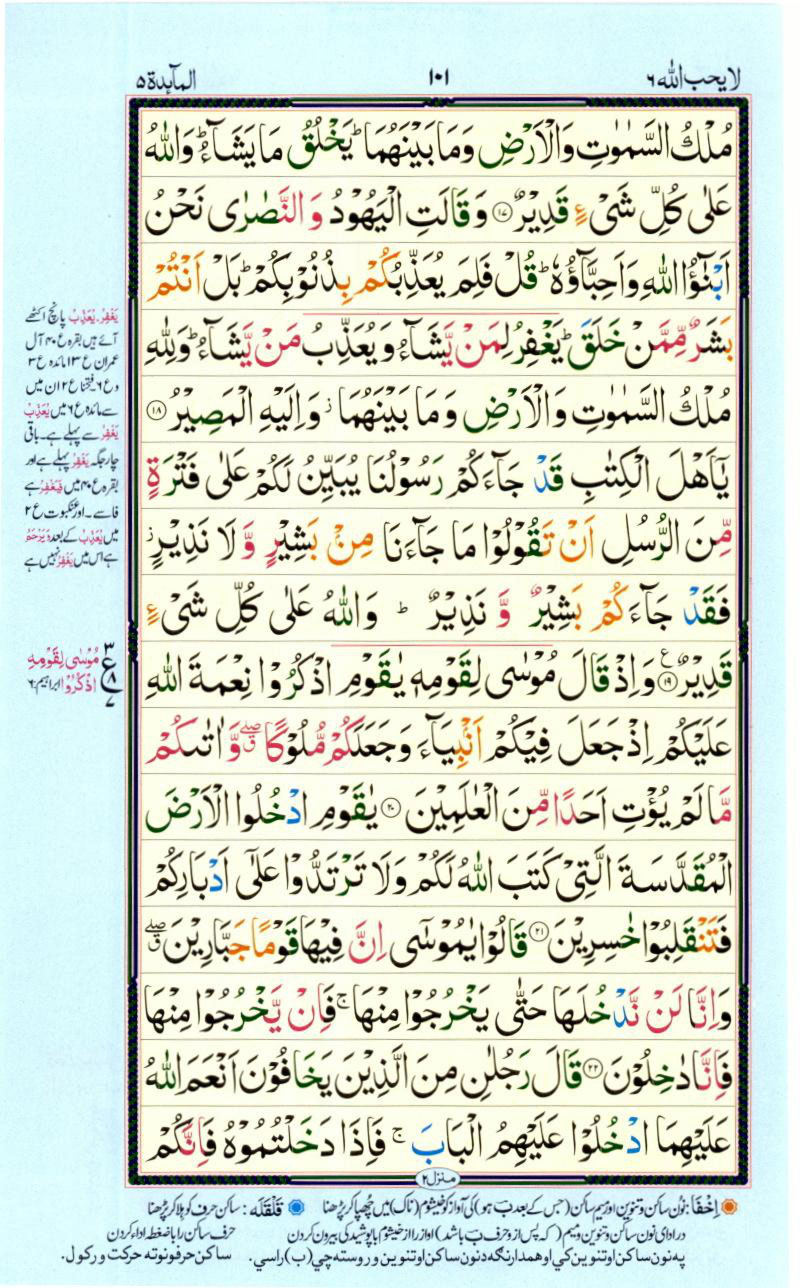 لا یحب اللہ ۶
۱۰۱
المآىِٕدۃ ۵
مُلْكُ السَّمٰوٰتِ وَالْاَرْضِ وَمَا بَیْنَهُمَا ؕ یَخْلُقُ مَا یَشَآءُ ؕ وَاللّٰهُ
عَلٰی كُلِّ شَیْءٍ قَدِیْرٌ ۝۱۷ وَقَالَتِ الْیَهُوْدُ وَالنَّصٰرٰی نَحْنُ
اَبْنٰٓؤُا اللّٰهِ وَاَحِبَّآؤُهٗ ؕ قُلْ فَلِمَ یُعَذِّبُكُمْ بِذُنُوْبِكُمْ ؕ بَلْ اَنْتُمْ
بَشَرٌ مِّمَّنْ خَلَقَ ؕ یَغْفِرُ لِمَنْ یَّشَآءُ وَیُعَذِّبُ مَنْ یَّشَآءُ ؕ وَلِلّٰهِ
مُلْكُ السَّمٰوٰتِ وَالْاَرْضِ وَمَا بَیْنَهُمَا ؗ وَاِلَیْهِ الْمَصِیْرُ ۝۱۸
یٰۤاَهْلَ الْكِتٰبِ قَدْ جَآءَكُمْ رَسُوْلُنَا یُبَیِّنُ لَكُمْ عَلٰی فَتْرَةٍ
مِّنَ الرُّسُلِ اَنْ تَقُوْلُوْا مَا جَآءَنَا مِنْۢ بَشِیْرٍ وَّلَا نَذِیْرٍ ؗ
فَقَدْ جَآءَكُمْ بَشِیْرٌ وَّنَذِیْرٌ ؕ وَاللّٰهُ عَلٰی كُلِّ شَیْءٍ
قَدِیْرٌ ۝۱۹ع وَاِذْ قَالَ مُوْسٰی لِقَوْمِهٖ یٰقَوْمِ اذْكُرُوْا نِعْمَةَ اللّٰهِ
عَلَیْكُمْ اِذْ جَعَلَ فِیْكُمْ اَنْۢبِیَآءَ وَجَعَلَكُمْ مُّلُوْكًا ۖۗ وَّاٰتٰىكُمْ
مَّا لَمْ یُؤْتِ اَحَدًا مِّنَ الْعٰلَمِیْنَ ۝۲۰ یٰقَوْمِ ادْخُلُوا الْاَرْضَ
الْمُقَدَّسَةَ الَّتِیْ كَتَبَ اللّٰهُ لَكُمْ وَلَا تَرْتَدُّوْا عَلٰۤی اَدْبَارِكُمْ
فَتَنْقَلِبُوْا خٰسِرِیْنَ ۝۲۱ قَالُوْا یٰمُوْسٰۤی اِنَّ فِیْهَا قَوْمًا جَبَّارِیْنَ ۖۗ
وَاِنَّا لَنْ نَّدْخُلَهَا حَتّٰی یَخْرُجُوْا مِنْهَا ۚ فَاِنْ یَّخْرُجُوْا مِنْهَا
فَاِنَّا دٰخِلُوْنَ ۝۲۲ قَالَ رَجُلٰنِ مِنَ الَّذِیْنَ یَخَافُوْنَ اَنْعَمَ اللّٰهُ
عَلَیْهِمَا ادْخُلُوْا عَلَیْهِمُ الْبَابَ ۚ فَاِذَا دَخَلْتُمُوْهُ فَاِنَّكُمْ
یَغْفِرُ، یُعَذِّبُ پانچ اکٹھے
آئے ہیں بقرہ ع ۴۰ آل
عمران ع ۱۳ مائدہ ع ۳
و ع ۶ فتحنا ع ۲ ان میں
سے مائدہ ع ۶ میں یُعَذِّبُ
یَغْفِرُ سے پہلے ہے۔ باقی
چار جگہ یَغْفِرُ پہلے ہے اور
بقرہ ع ۴۰ میں فَیَغْفِرُ ہے
فا سے۔ اور عنکبوت ع ۲
میں یُعَذِّبُ کے بعد وَیَرْحَمُ
ہے اس میں یَغْفِرُ نہیں ہے
۳
ع
۸
۷
مُوْسٰی لِقَوْمِهِ
اذْكُرُوْا ابراہیم: ۶
منزل ۲
اِخْفَا: نون ساکن و تنوین اور میم ساکن (جس کے بعد ب ہو) کی آواز کو خیشوم (ناک) میں چھپا کر پڑھنا
قَلْقَلَہ: ساکن حرف کو ہلا کر پڑھنا
در ادای نون ساکن و تنوین و میم (که پس از و حرف ب باشد) آواز را از خیشوم با پوشیدگی بیرون کردن
حرف ساکن را با ضغطه ادا کردن
په نون ساکن او تنوین کي او همدارنګه د نون ساکن او تنوین و روسته چي (ب) راسي.
ساکن حرفونو ته حرکت ورکول.